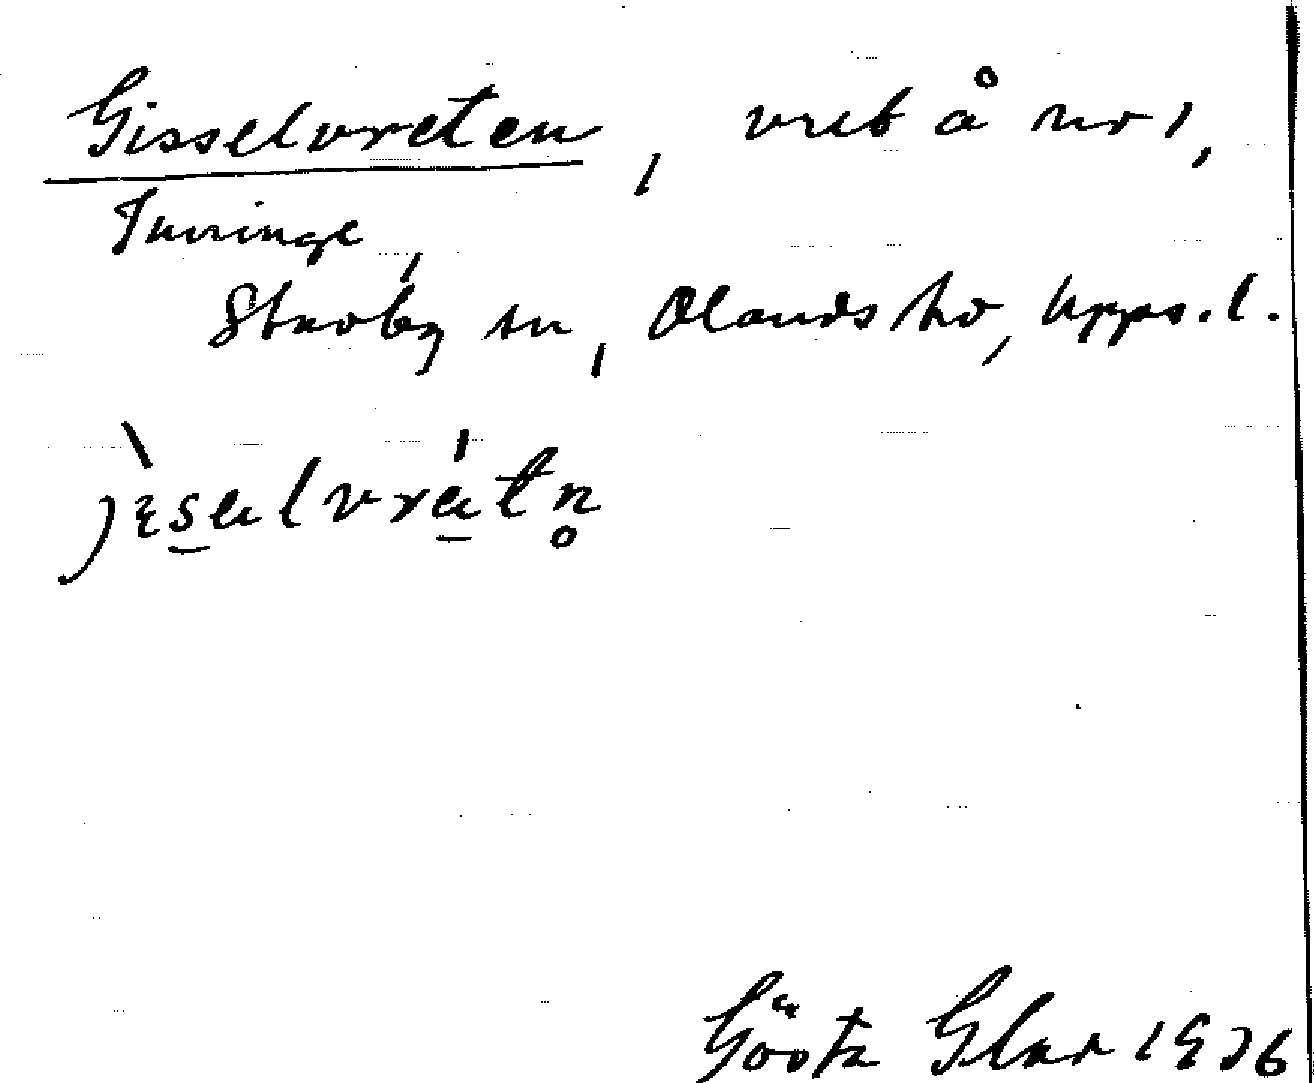 Gisselvreten, vret å nr 1,
Tuvinge,
Stavby sn, Olands hd, Upps. l.
Gösta Glar 1936